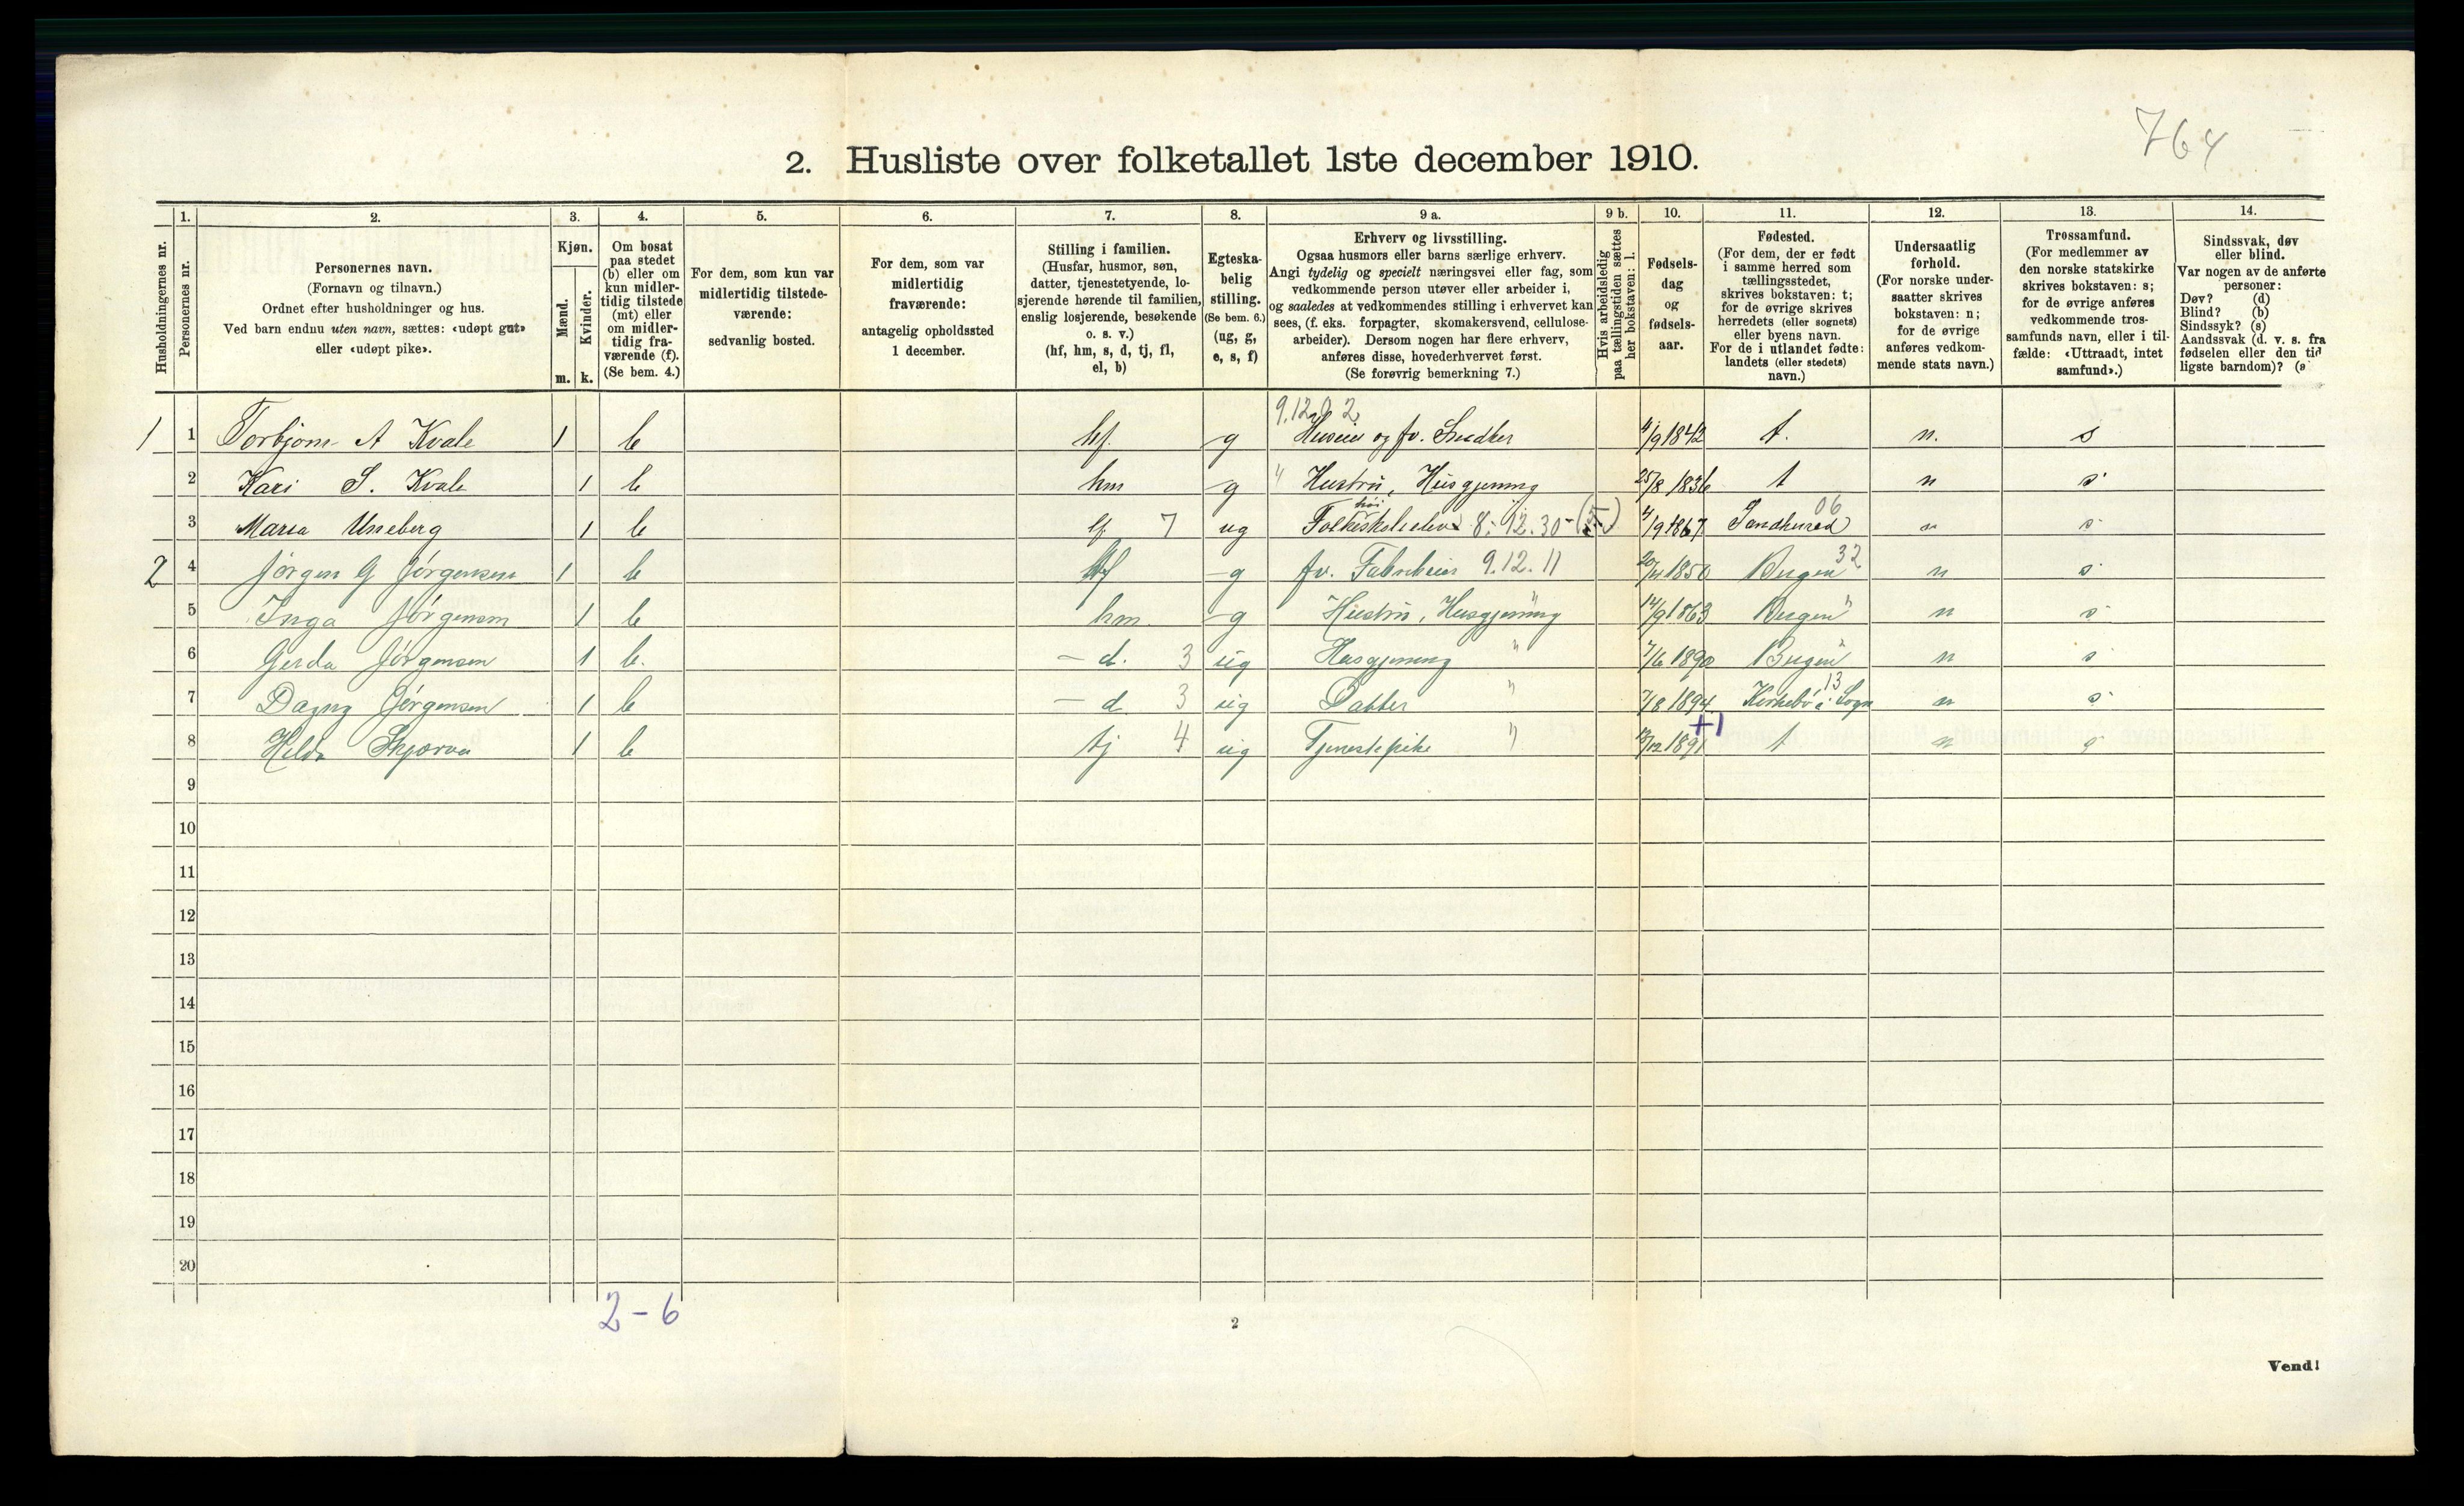 764
2. Husliste over folketallet 1ste december 1910.
1. 2. 3. 4. 5. 6. 7. 8. 9 a. 9 b. 10. 11. 12. 13. 14.
Husholdningernes nr.
Personernes nr.
Personernes navn.
(Fornavn og tilnavn.)
Ordnet efter husholdninger og hus.
Ved barn endnu uten navn, sættes: «udøpt gut»
eller «udøpt pike».
Kjøn.
Mænd.
Kvinder.
m. k.
Om bosat
paa stedet
(b) eller om
kun midler-
tidig tilstede
(mt) eller
om midler-
tidig fra-
værende (f).
(Se bem. 4.)
For dem, som kun var
midlertidig tilstede-
værende:
sedvanlig bosted.
For dem, som var
midlertidig
fraværende:
antagelig opholdssted
1 december.
Stilling i familien.
(Husfar, husmor, søn,
datter, tjenestetyende, lo-
sjerende hørende til familien,
enslig losjerende, besøkende
o. s. v.)
(hf, hm, s, d, tj, fl,
el, b)
Egteska-
belig
stilling.
(Se bem. 6.)
(ug, g,
e, s, f)
Erhverv og livsstilling.
Ogsaa husmors eller barns særlige erhverv.
Angi tydelig og specielt næringsvei eller fag, som
vedkommende person utøver eller arbeider i,
og saaledes at vedkommendes stilling i erhvervet kan
sees, (f. eks. forpagter, skomakersvend, cellulose-
arbeider). Dersom nogen har flere erhverv,
anføres disse, hovederhvervet først.
(Se forøvrig bemerkning 7.)
Hvis arbeidsledig
paa tællingstiden sættes
her bokstaven: l.
Fødsels-
dag
og
fødsels-
aar.
Fødested.
(For dem, der er født
i samme herred som
tællingsstedet,
skrives bokstaven: t;
for de øvrige skrives
herredets (eller sognets)
eller byens navn.
For de i utlandet fødte:
landets (eller stedets)
navn.)
Undersaatlig
forhold.
(For norske under-
saatter skrives
bokstaven: n;
for de øvrige
anføres vedkom-
mende stats navn.)
Trossamfund.
(For medlemmer av
den norske statskirke
skrives bokstaven: s;
for de øvrige anføres
vedkommende tros-
samfunds navn, eller i til-
fælde: «Uttraadt, intet
samfund».)
Sindssvak, døv
eller blind.
Var nogen av de anførte
personer:
Døv? (d)
Blind? (b)
Sindssyk? (s)
Aandssvak (d. v. s. fra
fødselen eller den tid
ligste barndom)? (a
9.12.02
1 1 Torbjørn A Kvale 1 b hf. g Huseier og fv. Snedker 4/9 1842 t. n. s
2 Kari S. Kvale 1 b hm g " Hustru, Husgjerning 25/8 1836 t n s
3 Maria Uneberg 1 b 7 ug 8.12.30 4/9 1867 Sandherad 06 n s
2 4 Jørgen G Jørgensen 1 b hf g fv. Fabrikeier 9.12.11 1850 Bergen 32 n s
5 Inga Jørgensen 1 b hm g Hustru, Husgjerning " 14/9 1863 Bergen " n s
6 Gerda Jørgensen 1 b. – d. 3 ug Husgjerning " 7/6 1890 Bergen " n s
7 Dagny Jørgensen 1 b – d 3 ug Datter " 7/8 1894 Kirkebø i Sogn 13 n s
8 Helda 1 b tj 4 ug Tjenestepike " 1891 +1 t n s
9
10
11
12
13
14
15
16
17
18
19
20
2 – 6
2
Vend!